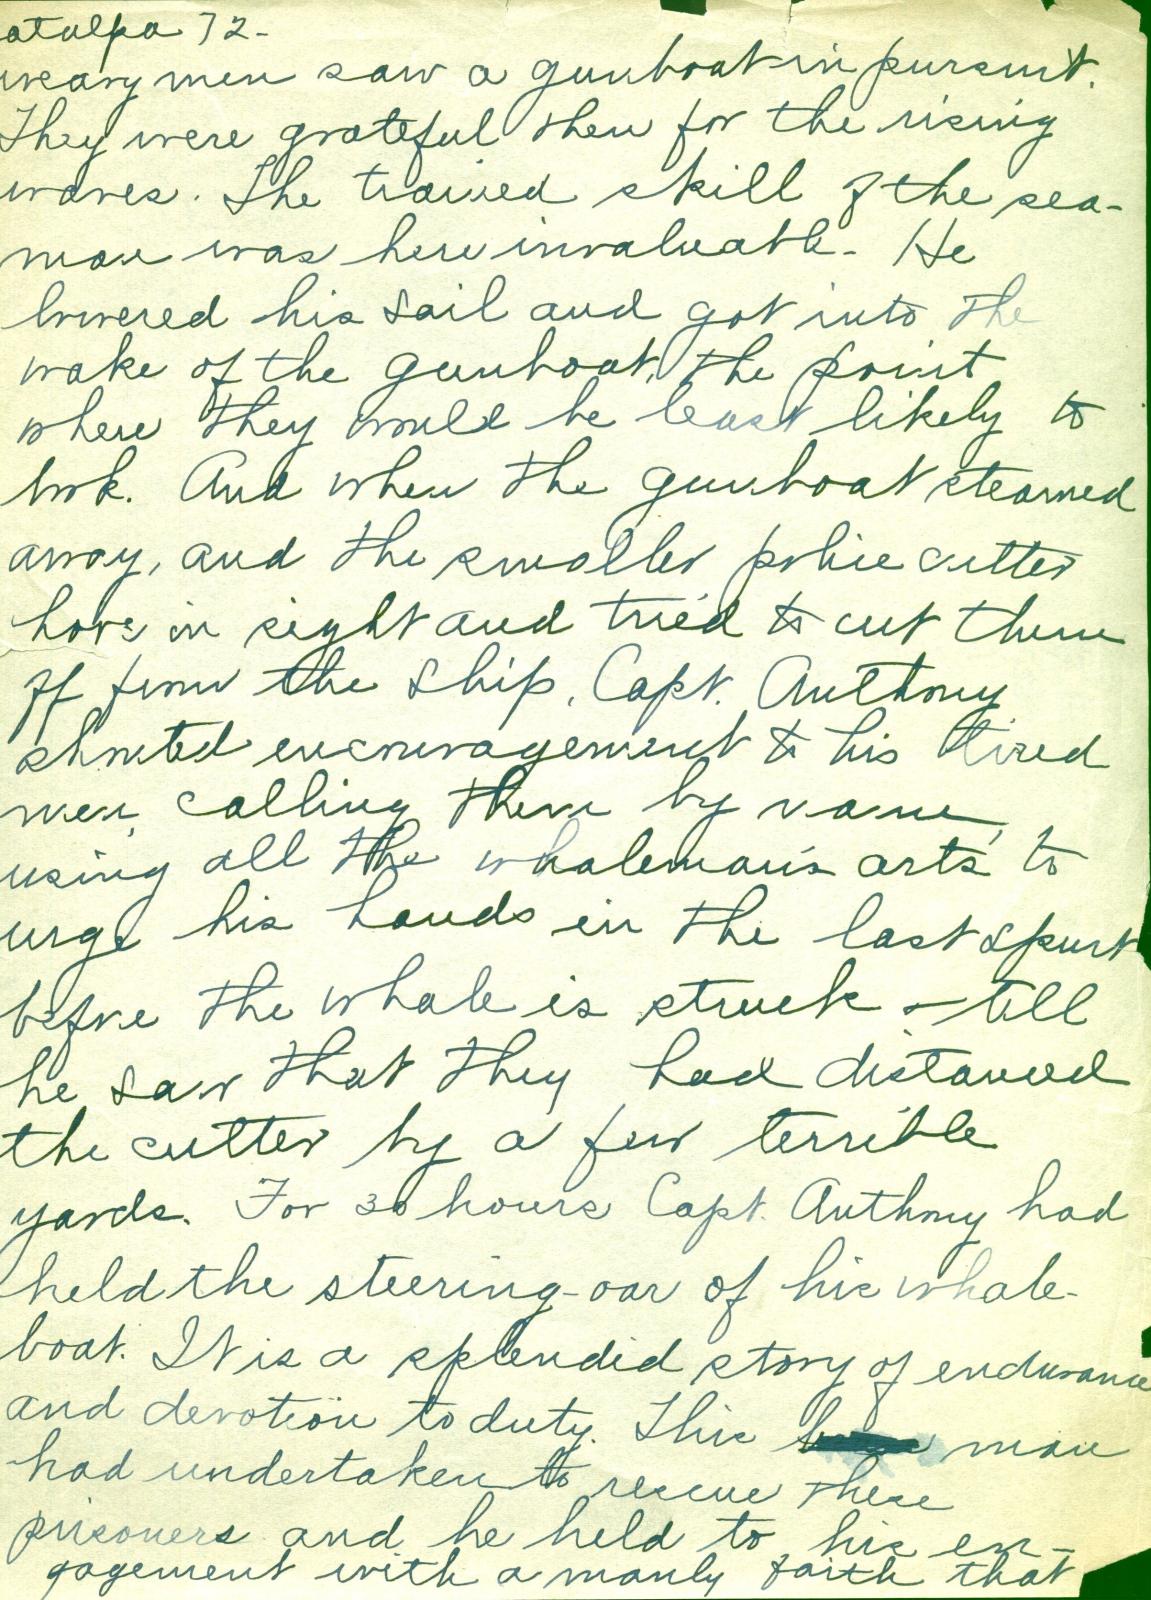 atalpa 72-
weary men saw a gunboat in pursuit.
They were grateful then for the rising
waves. The trained skill of the sea-
man was here invaluable. He
lowered his sail and got into the
wake of the gunboat, the point
where they would be least likely to
look. And when the gunboat steamed
away, and the smaller police cutter
hove in sight and tried to cut them
off from the ship, Capt. Anthony
shouted encouragement to his tired
men, calling them by name,
using all the whaleman's arts to
urge his hands in the last spurt
before the whale is struck - till
he saw that they had distanced
the cutter by a few terrible
yards. For 30 hours Capt. Anthony had
held the steering-oar of his whale-
boat. It is a splendid story of endurance
and devotion to duty. This man
had undertaken to rescue these
prisoners and he held to his en-
gagement with a manly faith that